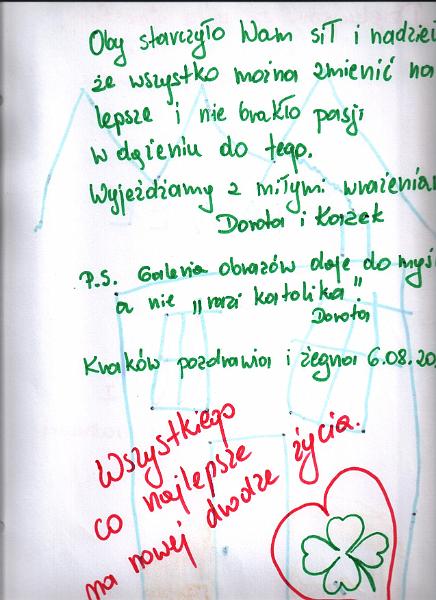 Oby starczyło Wam sił i nadziei
że wszystko można zmienić na
lepsze i nie brakło pasji
w dążeniu do tego.
Wyjeżdżamy z miłymi wrażeniam
Dorota i Korzek
P.S. Galeria obrazów daje do myś
a nie „razi katolika".
Dorota
Kraków pozdrawia i żegna 6.08.20
Wszystkiego
co najlepsze
na nowej drodze życia.